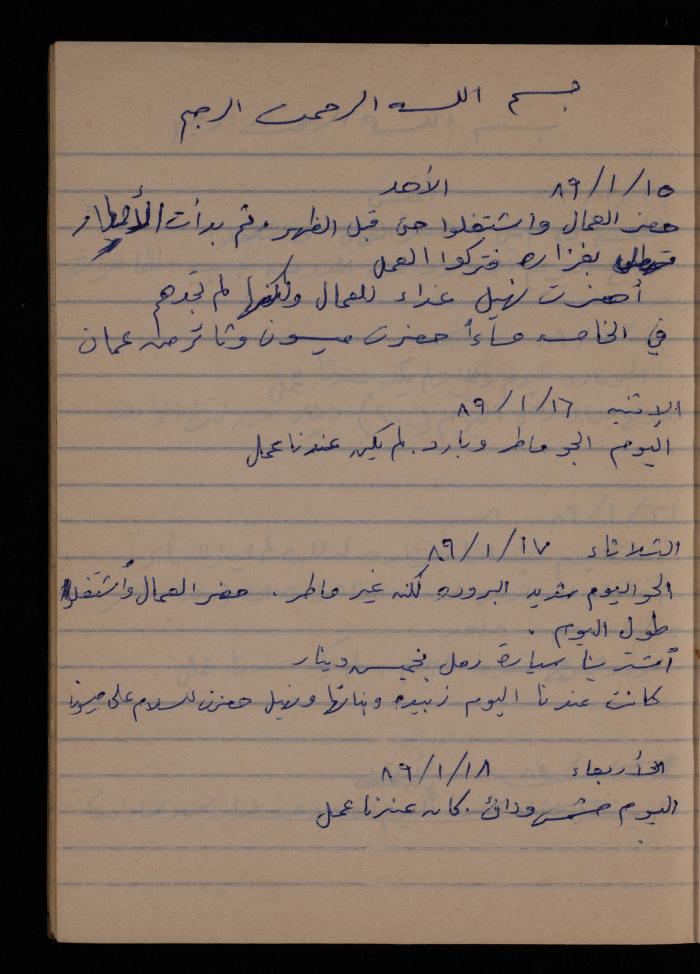 بسم الله الرحمن الرحيم
٨٩/١/١٥ الأحد
حضر العمال واشتغلوا حتى قبل الظهر. ثم بدأت الأمطار
بغزاره فتركوا العمل
أحضرت نهيل غداء للعمال ولكنها لم تجدهم
في الخامسه مساءاً حضرت ميسون وثائر من عمان
الاثنين ٨٩/١/١٦
اليوم الجو ماطر وبارد. لم يكن عندنا عمل
الثلاثاء ٨٩/١/١٧
الجو اليوم شديد البروده لكنه غير ماطر. حضر العمال واشتغلوا
طول اليوم.
أشترينا سيارة رمل بخمسين دينار
كانت عندنا اليوم زبيده وبناتها ونهيل حضرن للسلام على ميسون
الأربعاء ٨٩/١/١٨
اليوم مشمس ودافئ. كان عندنا عمل